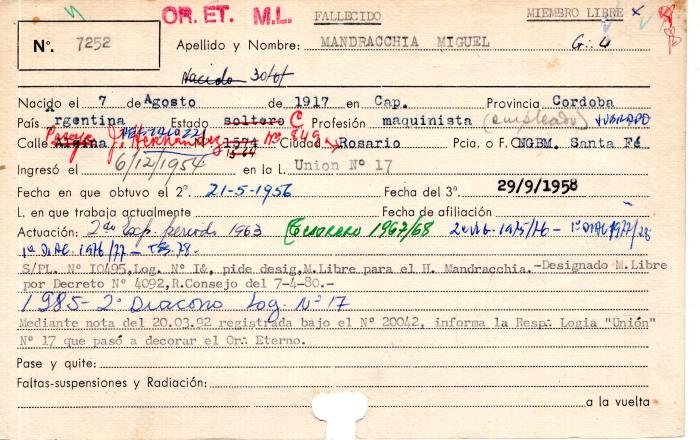 OR. ET. M.L. FALLECIDO MIEMBRO LIBRE x
Nº. 7252 Apellido y Nombre: MANDRACCHIA MIGUEL G. 4
Nacido el 7 de Agosto de 1917 en Cap. Provincia Cordoba
País Argentina Estado soltero C Profesión maquinista (empleado) JUBILADO
Calle Alsina Pasaje J. Hernandez 1574 Nº 849 Ciudad Rosario Pcia. o F.C. NGBM. Santa Fé
Ingresó el 6/12/1954 en la L. Union Nº 17
Fecha en que obtuvo el 2º. 21-5-1956 Fecha del 3º. 29/9/1958
L. en que trabaja actualmente Fecha de afiliación
Actuación: 2do Exp. periodo 1963 Tesorero 1967/68 2º Vig. 1975/76 - 1º DIAC 1977/78
1º DIAC. 1976/77 - TES. 78.
S/PL. Nº I0495,Log. Nº I&, pide desig,M.Libre para el H. Mandracchia.-Designado M.Libre
por Decreto Nº 4092,R.Consejo del 7-4-80.-
1985- 2º Diacono Log. Nº 17
Mediante nota del 20.03.92 registrada bajo el Nº 20042, informa la Resp∴ Logia "Unión"
Nº 17 que pasó a decorar el Or∴ Eterno.
Pase y quite:
Faltas-suspensiones y Radiación:
a la vuelta